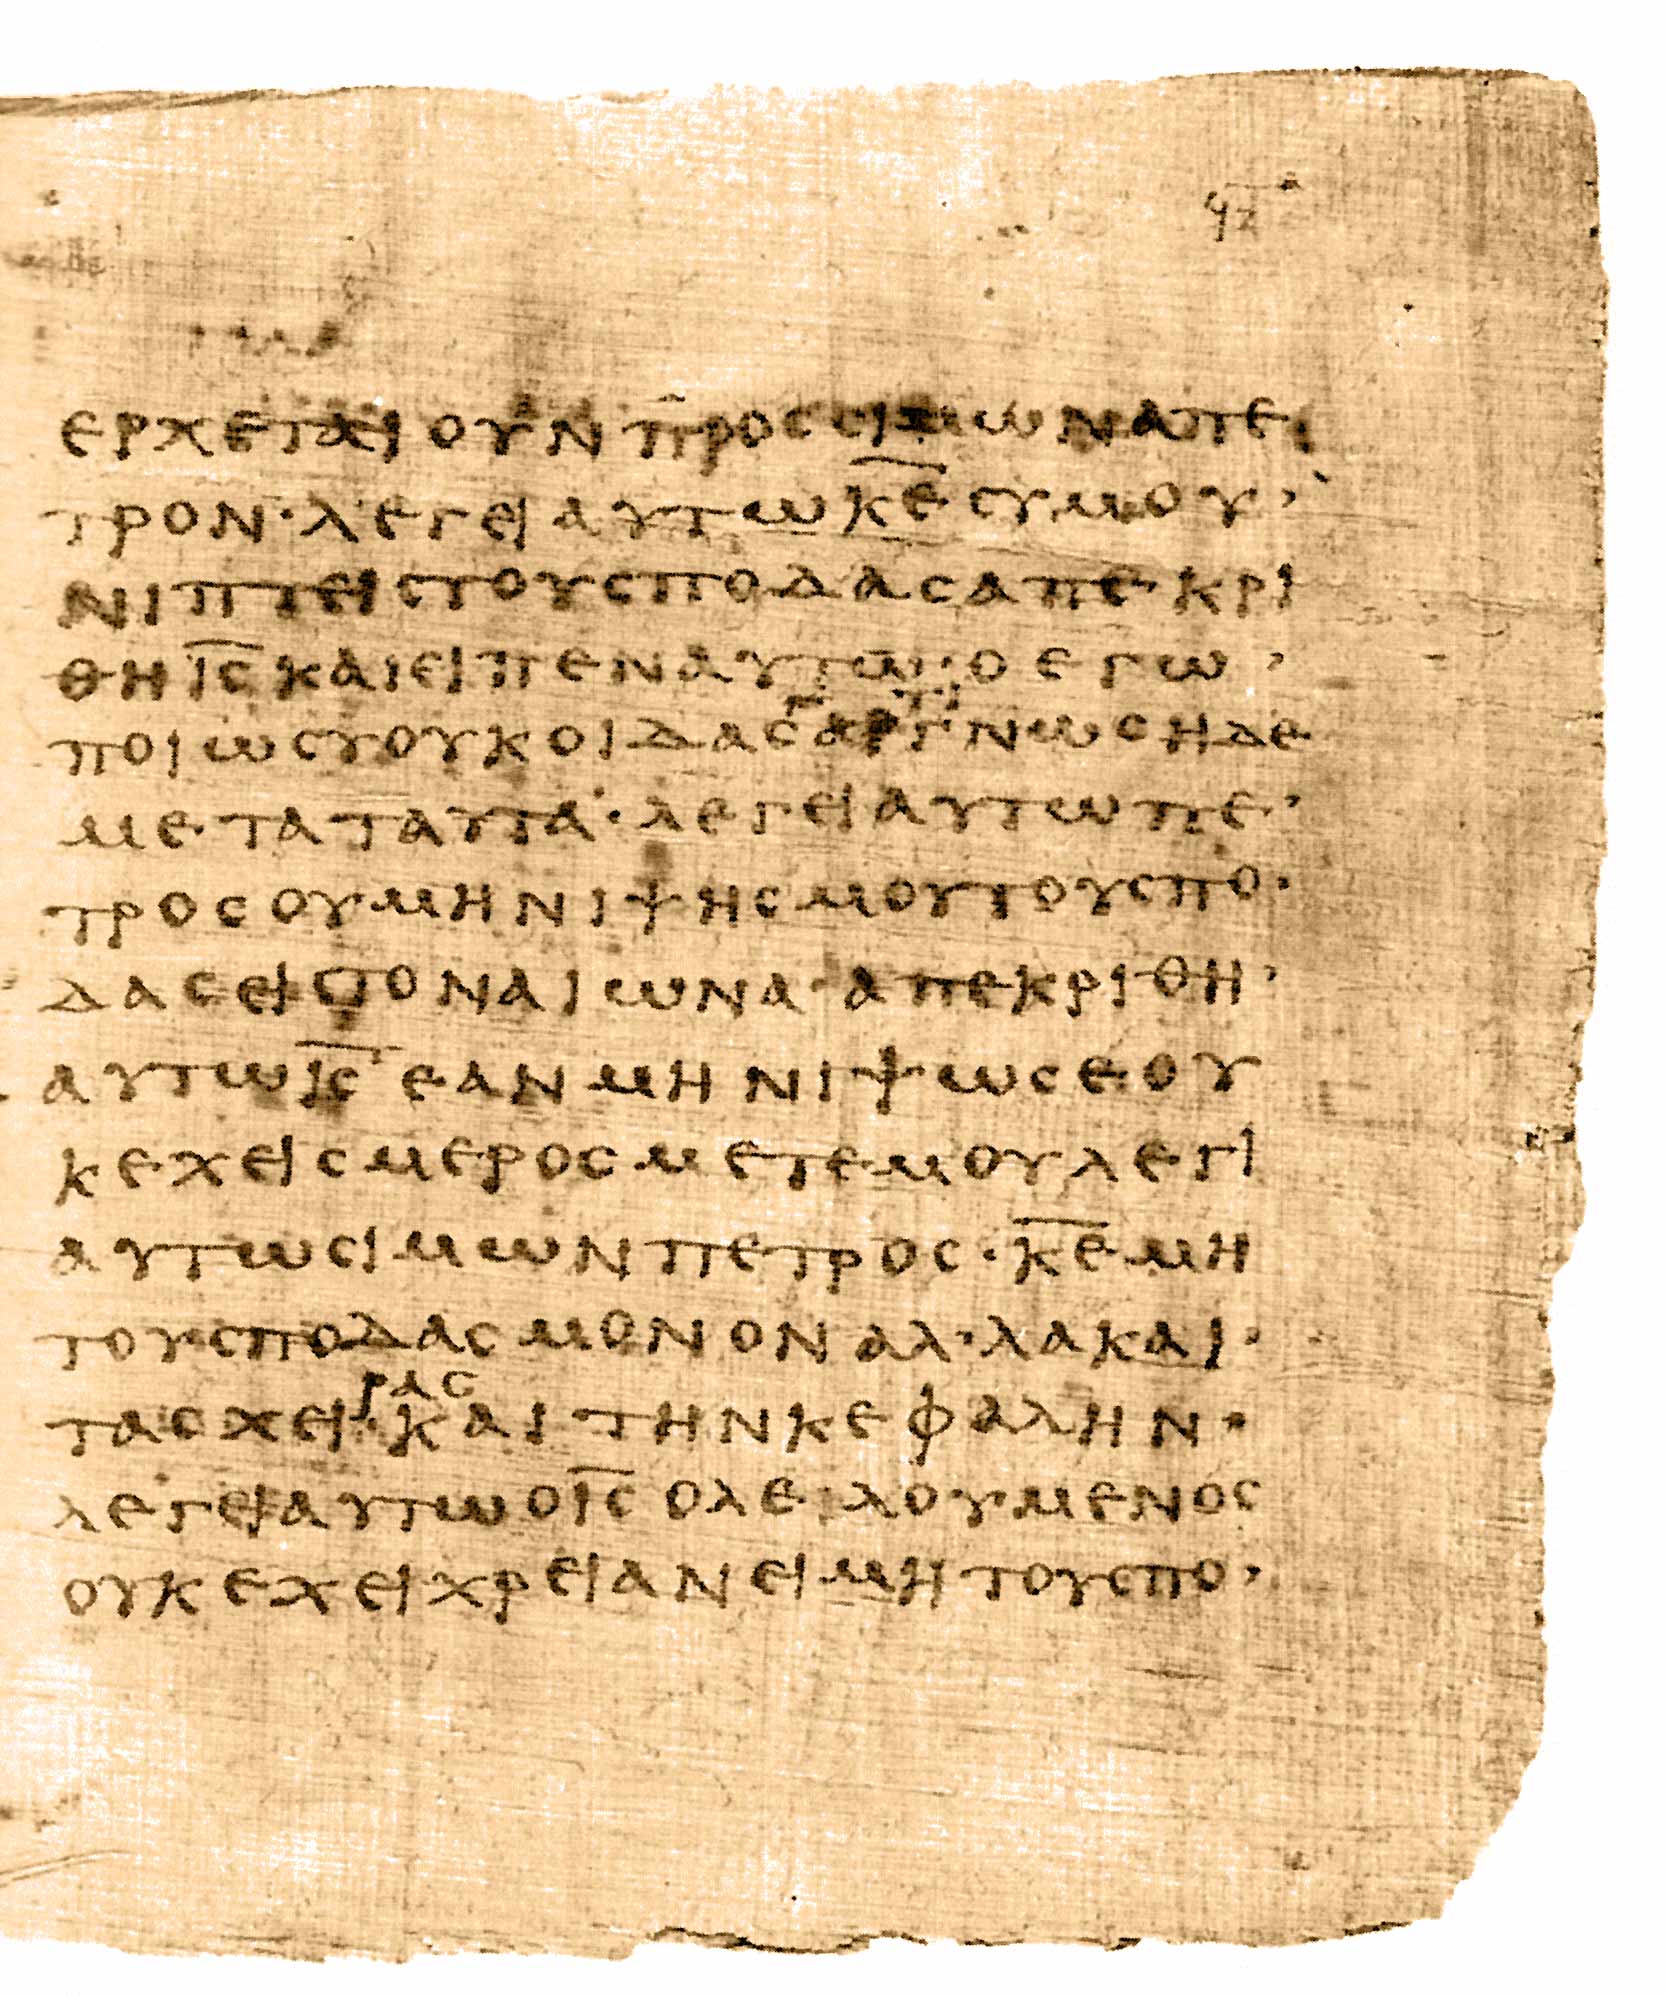 ϥζ
ερχεται ουν προς σιμωνα πε
τρον· λεγει αυτω κ̅ε̅ συ μου
νιπτεις τους ποδας απεκρι
θη ι̅ς̅ και ειπεν αυτω· ο εγω
ποιω συ ουκ οιδας αρτι γνωση δε
μετα ταυτα· λεγει αυτω πε
τρος ου μη νιψης μου τους πο
δας εις τον αιωνα· απεκριθη
αυτω ι̅ς̅ εαν μη νιψω σε ου
κ εχεις μερος μετ εμου λεγι
αυτω σιμων πετρος· κ̅ε̅ μη
τους ποδας μονον αλλα και
τας χειρας και την κεφαλην·
λεγει αυτω ο ι̅ς̅ ο λελουμενος
ουκ εχει χρειαν ει μη τους πο